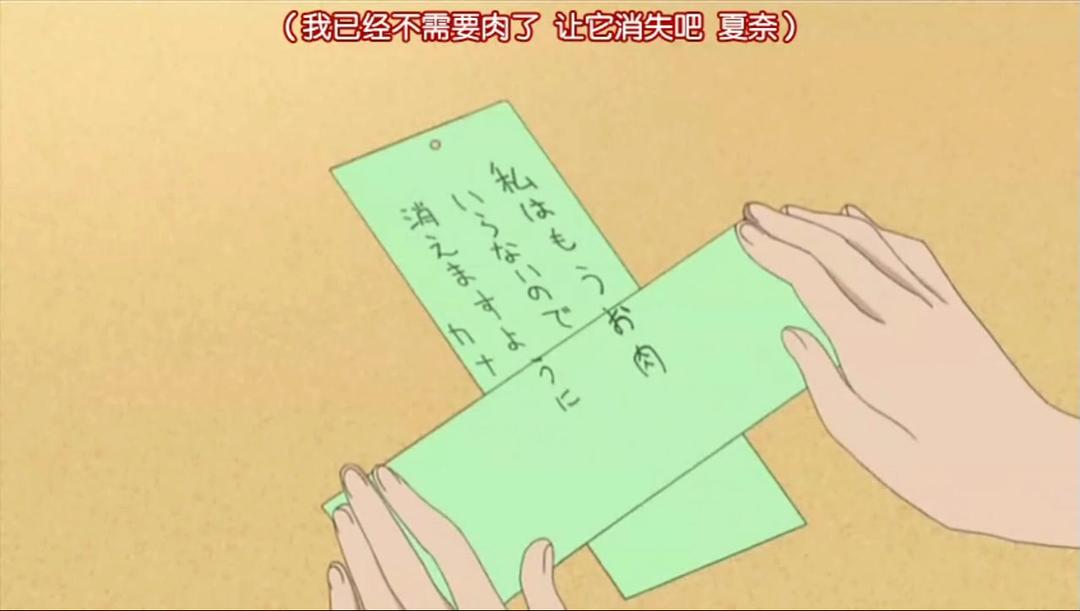 （我已经不需要肉了 让它消失吧 夏奈）
私はもうお肉
いらないので
消えますように
カナ